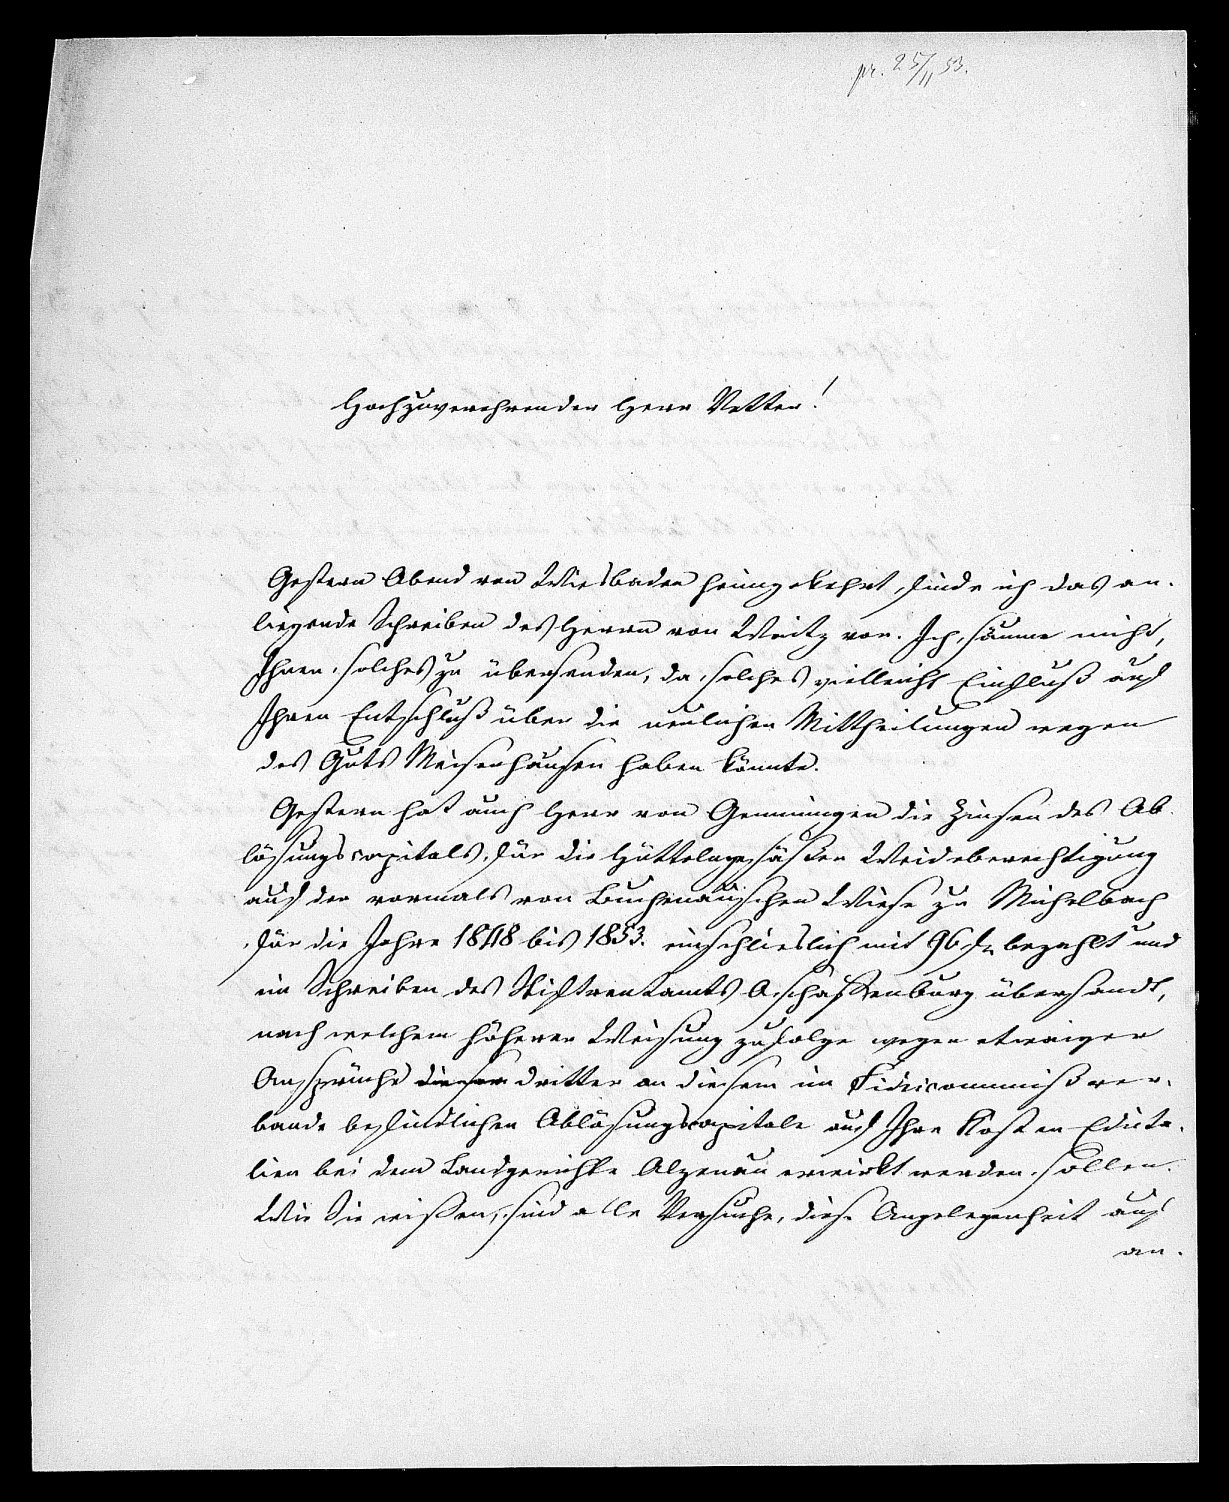 pr. 25/11 53.
Hochzuverehrender Herr Vetter!
Gestern Abend von Wiesbaden heimgekehrt, finde ich das an-
liegende Schreiben des Herrn von Weitz vor. Ich säume nicht,
Ihnen solches zu übersenden, da solches vielleicht Einfluß auf
Ihren Entschluß über die neulichen Mittheilungen wegen
des Guts Meisenhausen haben könnte.
Gestern hat auch Herr von Gemmingen die Zinsen des Ab-
lösungscapitals für die Hüttelngesäßer Weideberechtigung
auf der vormals von Buchenauischen Wiese zu Michelbach
für die Jahre 1848 bis 1853. einschlieslich mit 96 fl bezahlt und
ein Schreiben des Stiftrentamts Aschaffenburg übersandt,
nach welchem höherer Weisung zufolge wegen etwaiger
Ansprüche dritter an diesem im Fideicommißver-
bande befindlichen Ablösungscapitale auf Ihre Kosten Edicta-
lien bei dem Landgerichte Alzenau erwirkt werden sollen.
Wie Sie wißen, sind alle Versuche, diese Angelegenheit auf
an-